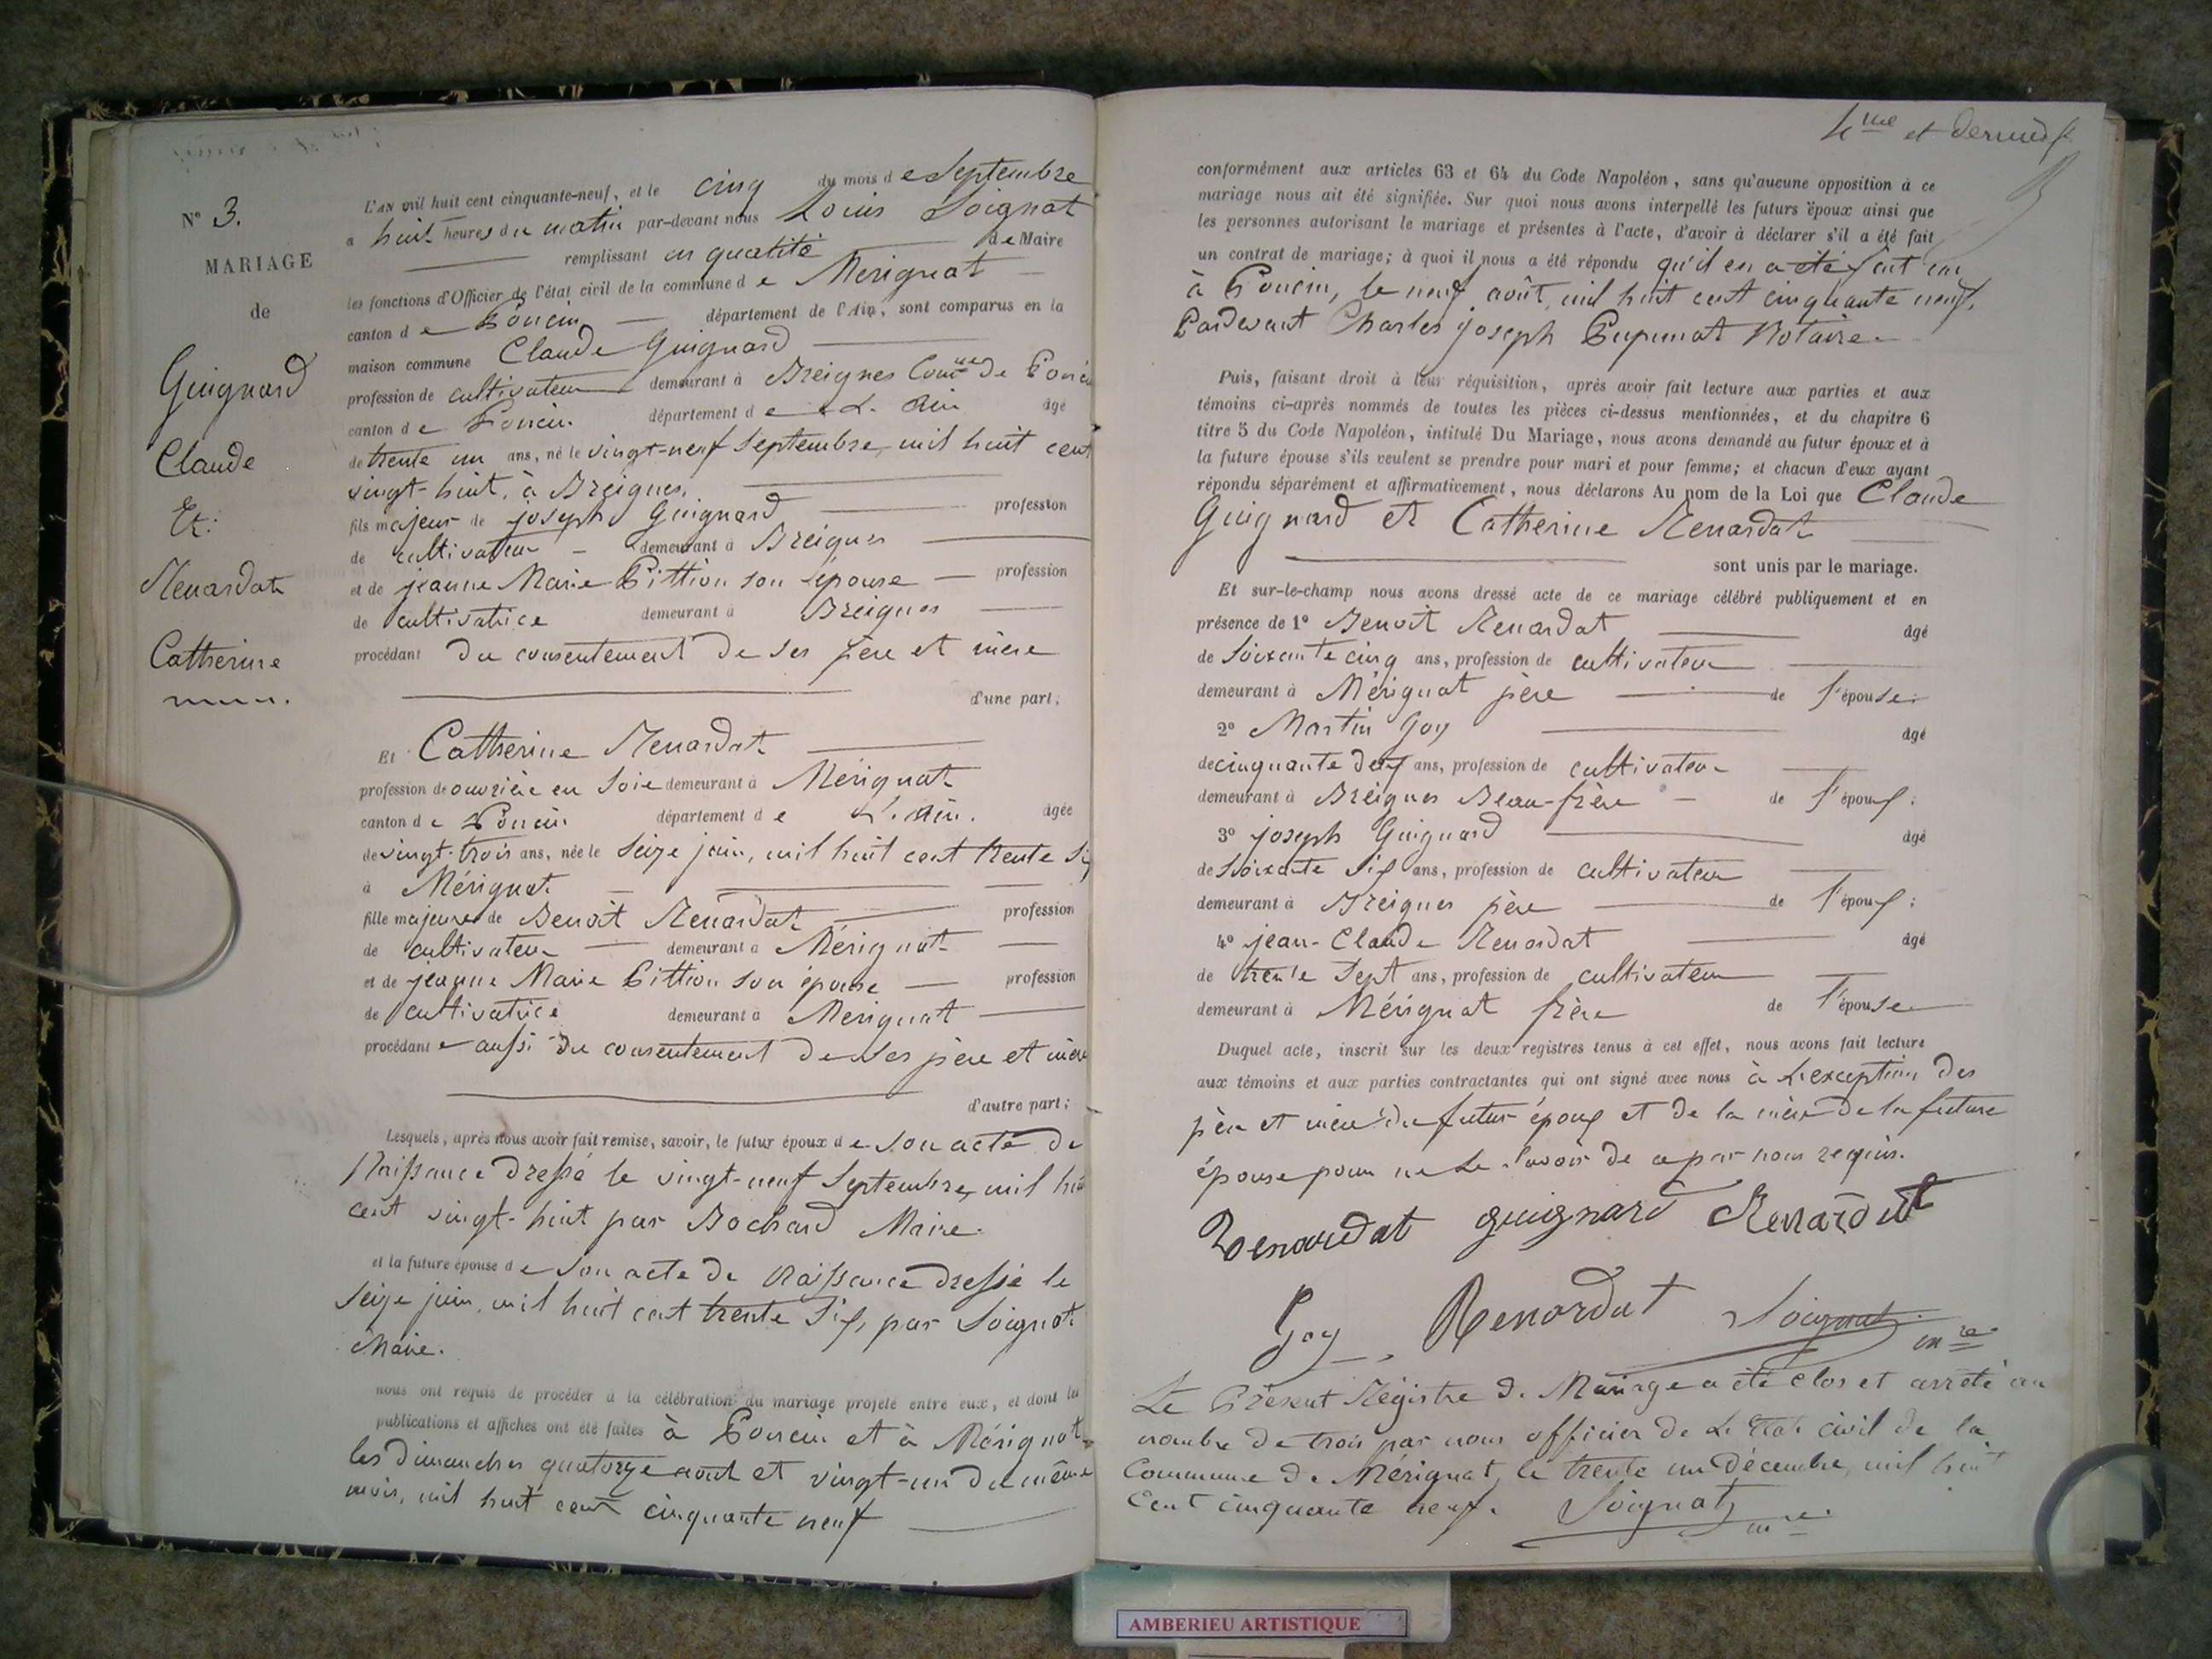 N° 3.
MARIAGE
de
Guignard
Claude
Et
Renardat
Catherine
L'AN mil huit cent cinquante-neuf, et le cinq du mois de Septembre
a huit heures du matin par-devant nous Louis Soignat
remplissant en qualité de Maire
les fonctions d'Officier de l'état civil de la commune de Mérignat
canton de Poncin département de l'Ain, sont comparus en la
maison commune Claude Guignard
profession de cultivateur demeurant à Breignes Comune de Poncin
canton de Poncin département de L'Ain âgé
de trente un ans, né le vingt-neuf Septembre, mil huit cent
vingt-huit, à Breignes,
fils majeur de joseph Guignard profession
de cultivateur demeurant à Breignes
et de jeanne Marie Pittion son épouse profession
de cultivatrice demeurant à Breignes
procédant du consentement de ses père et mère
d'une part;
Et Catherine Renardat
profession de ouvrière en Soie demeurant à Mérignat
canton de Poncin département de L'Ain. âgée
de vingt-trois ans, née le Seize juin, mil huit cent trente Six
à Mérignat
fille majeure de Benoît Renardat profession
de cultivateur demeurant à Mérignat
et de jeanne Marie Pittion son épouse profession
de cultivatrice demeurant à Mérignat
procédant e aussi du consentement de ses père et mère
d'autre part;
Lesquels, après nous avoir fait remise, savoir, le futur époux de Son acte de
Naissance dressé le vingt-neuf Septembre, mil huit
cent vingt-huit par Bochard Maire.
et la future épouse de Son acte de Naissance dressé le
Seize juin, mil huit cent trente Six, par Soignat
Maire.
nous ont requis de procéder à la célébration du mariage projeté entre eux, et dont les
publications et affiches ont été faites à Poncin et à Mérignat
les dimanches quatorze août et vingt-un du même
mois, mil huit cent cinquante neuf
4me et dernier f.
conformément aux articles 63 et 64 du Code Napoléon, sans qu'aucune opposition à ce
mariage nous ait été signifiée. Sur quoi nous avons interpellé les futurs époux ainsi que
les personnes autorisant le mariage et présentes à l'acte, d'avoir à déclarer s'il a été fait
un contrat de mariage; à quoi il nous a été répondu qu'il en a été fait un
à Poncin, le neuf août, mil huit cent cinquante neuf,
Pardevant Charles joseph Pupunat Notaire.
Puis, faisant droit à leur réquisition, après avoir fait lecture aux parties et aux
témoins ci-après nommés de toutes les pièces ci-dessus mentionnées, et du chapitre 6
titre 5 du Code Napoléon, intitulé Du Mariage, nous avons demandé au futur époux et à
la future épouse s'ils veulent se prendre pour mari et pour femme; et chacun d'eux ayant
répondu séparément et affirmativement, nous déclarons Au nom de la Loi que Claude
Guignard et Catherine Renardat
sont unis par le mariage.
Et sur-le-champ nous avons dressé acte de ce mariage célébré publiquement et en
présence de 1° Benoît Renardat âgé
de Soixante cinq ans, profession de cultivateur
demeurant à Mérignat père de l'épouse.
2° Martin Goy âgé
de cinquante deux ans, profession de cultivateur
demeurant à Breignes Beau-frère de l'époux;
3° joseph Guignard âgé
de Soixante Six ans, profession de cultivateur
demeurant à Breignes père de l'époux;
4° jean-Claude Renardat âgé
de trente Sept ans, profession de cultivateur
demeurant à Mérignat frère de l'épouse
Duquel acte, inscrit sur les deux registres tenus à cet effet, nous avons fait lecture
aux témoins et aux parties contractantes qui ont signé avec nous à L'exception des
père et mère du futur époux et de la mère de la future
épouse pour ne Le Savoir de ce par nous requis.
Renardat guignard Renardat
Goy Renardat Soignat mre
Le Présent Régistre de Mariage a été clos et arrêté au
nombre de trois par nous officier de L'Etat civil de la
Commune de Mérignat, le trente un Décembre, mil huit
Cent cinquante neuf. Soignat mre
AMBERIEU ARTISTIQUE